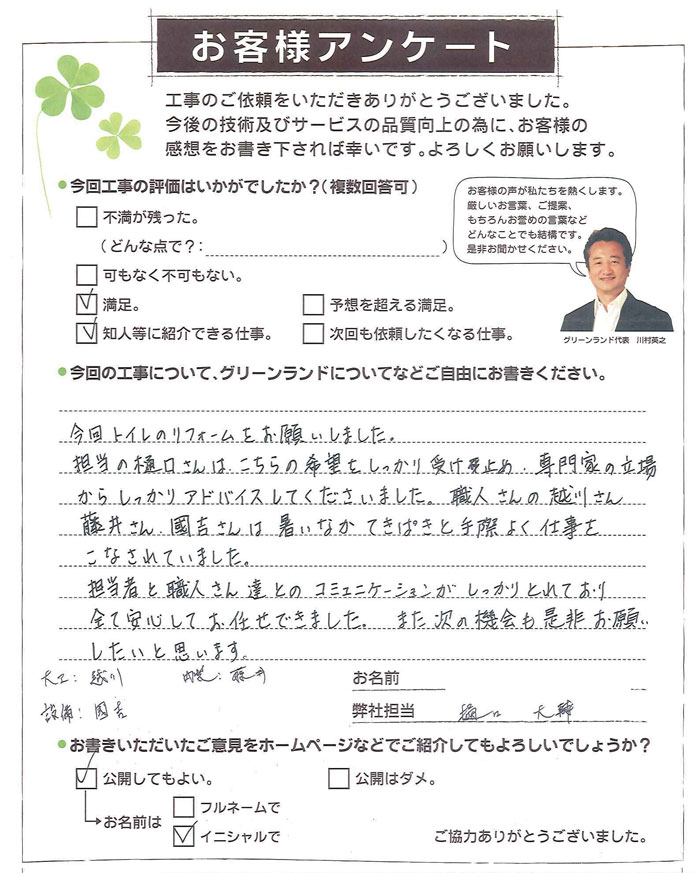 お客様アンケート
工事のご依頼をいただきありがとうございました。
今後の技術及びサービスの品質向上の為に、お客様の
感想をお書き下されば幸いです。よろしくお願いします。
今回工事の評価はいかがでしたか?(複数回答可)
不満が残った。
(どんな点で?: )
可もなく不可もない。
満足。
予想を超える満足。
知人等に紹介できる仕事。
次回も依頼したくなる仕事。
お客様の声が私たちを熱くします。
厳しいお言葉、ご提案、
もちろんお誉めの言葉など
どんなことでも結構です。
是非お聞かせください。
グリーンランド代表 川村英之
今回の工事について、グリーンランドについてなどご自由にお書きください。
今回トイレのリフォームをお願いしました。
担当の樋口さんは、こちらの希望をしっかり受け止め、専門家の立場
からしっかりアドバイスしてくださいました。職人さんの越川さん
藤井さん、國吉さんは暑いなかてきぱきと手際よく仕事を
こなされていました。
担当者と職人さん達とのコミュニケーションがしっかりとれており
全て安心してお任せできました。また次の機会も是非お願い
したいと思います。
大工:越川 内装:藤井
設備:國吉
お名前
弊社担当 樋口 大輝
お書きいただいたご意見をホームページなどでご紹介してもよろしいでしょうか?
公開してもよい。
公開はダメ。
お名前は
フルネームで
イニシャルで
ご協力ありがとうございました。